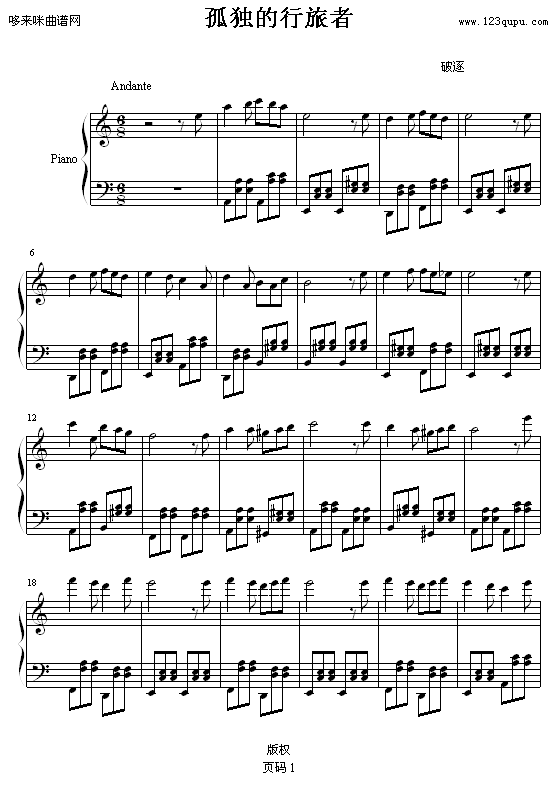 孤独的行旅者
哆来咪曲谱网
www.123qupu.com
破逐
Andante
Piano
6
8
6
8
6
12
18
版权
页码 1